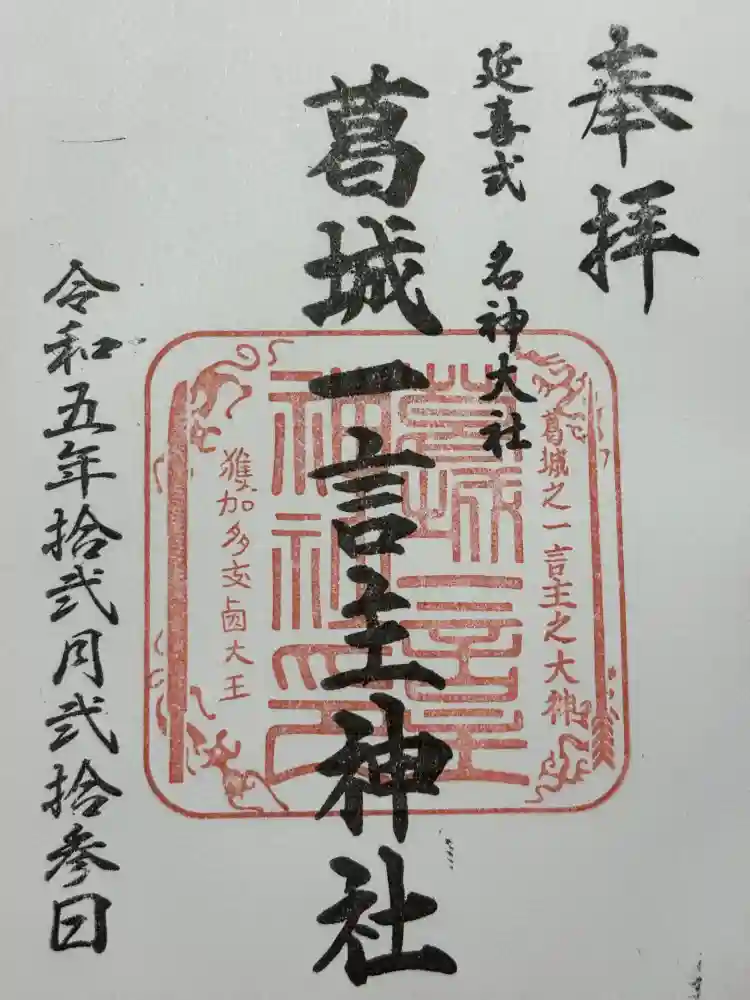 奉拝
延喜式 名神大社
葛城一言主神社
令和五年拾弐月弐拾参日
葛城之一言主之大神
獲加多支鹵大王
葛城一言主
神社